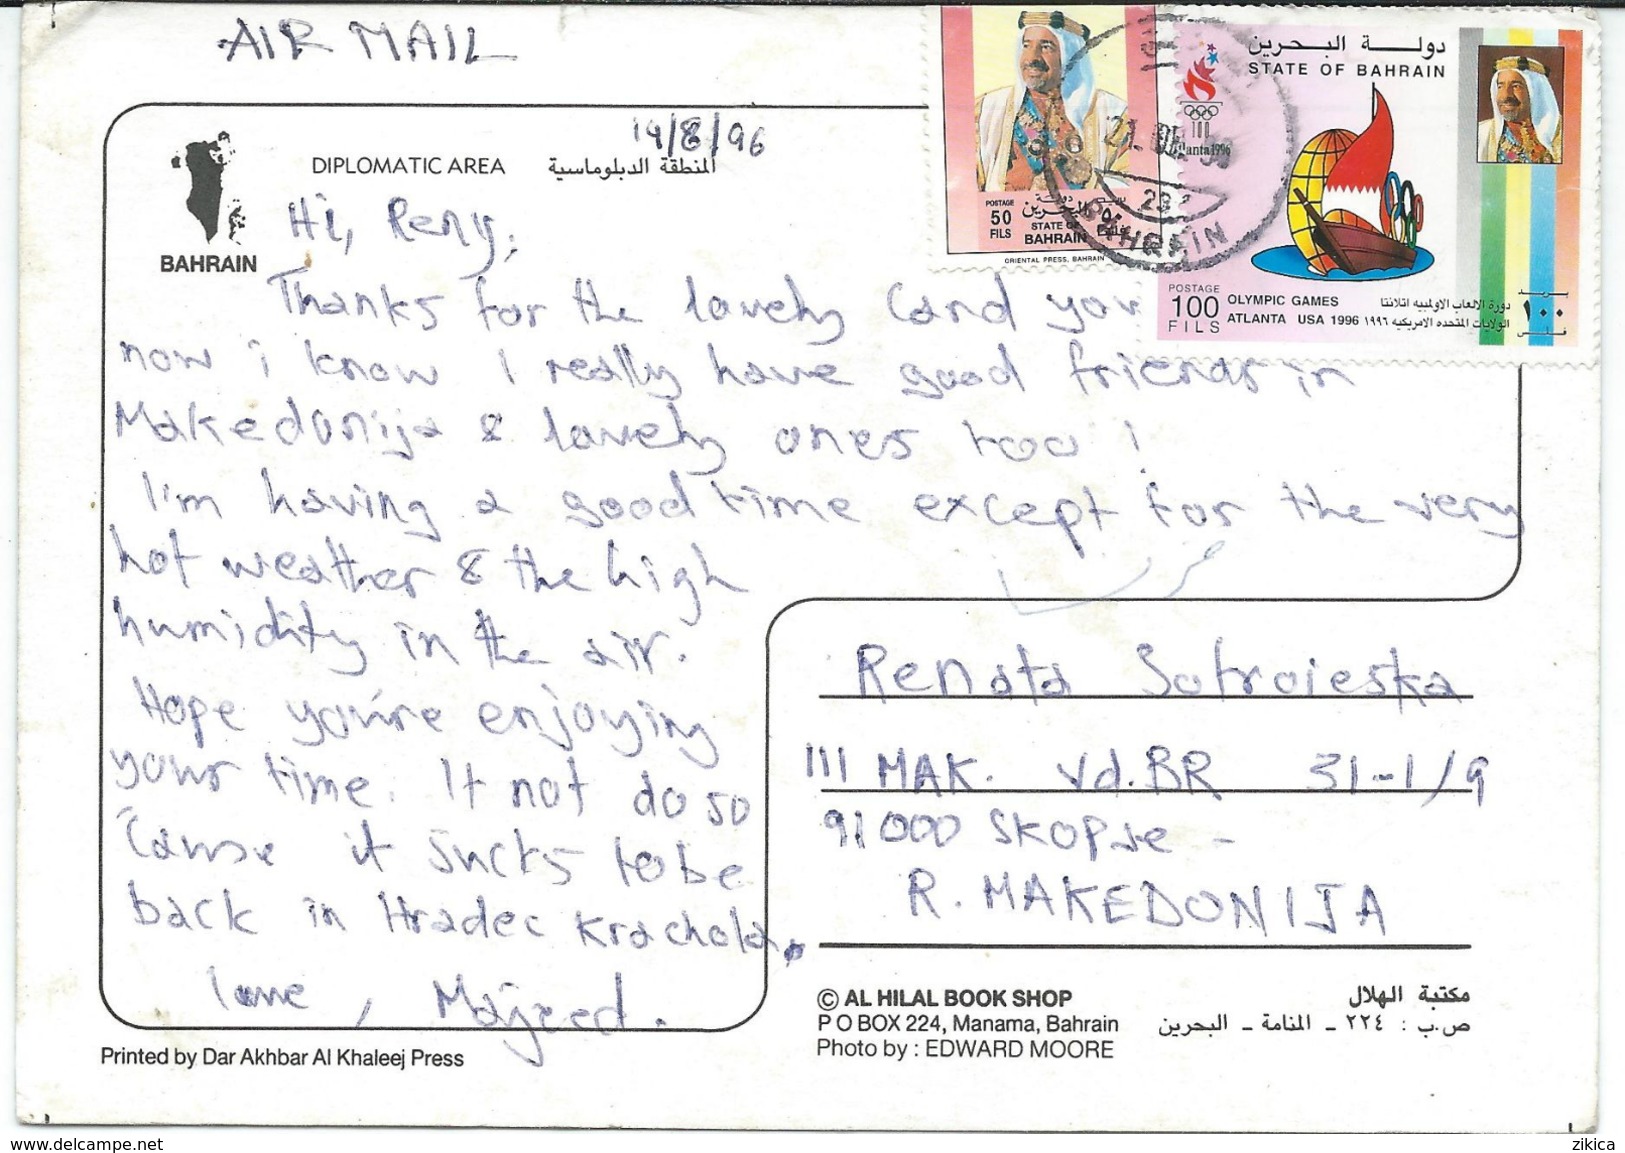 AIR MAIL
19/8/96
DIPLOMATIC AREA المنطقة الدبلوماسية
BAHRAIN
Hi, Reny,
Thanks for the lovely Card you
now i know I really have good friends in
Makedonija & lovely ones too!
I'm having a good time except for the very
hot weather & the high
humidity in the air.
Hope you're enjoying
your time. If not do so
'Cause it sucks to be
back in Hradec Krachola.
love, Majeed.
POSTAGE
50
FILS
دولة البحرين
STATE OF
BAHRAIN
٥٠
ORIENTAL PRESS, BAHRAIN
BAHRAIN
دولة البحرين
STATE OF BAHRAIN
100
Atlanta 1996
POSTAGE
100
FILS
OLYMPIC GAMES
ATLANTA USA 1996
دورة الالعاب الاولمبيه اتلانتا
الولايات المتحده الامريكيه ١٩٩٦
بريد
١٠٠
فلس
Renata
111 MAK. Vd. BR 31-1/9
91000 SKOPJE -
R. MAKEDONIJA
© AL HILAL BOOK SHOP
P O BOX 224, Manama, Bahrain
Photo by : EDWARD MOORE
مكتبة الهلال
ص.ب : ٢٢٤ ـ المنامة ـ البحرين
Printed by Dar Akhbar Al Khaleej Press
www.delcampe.net
zikica